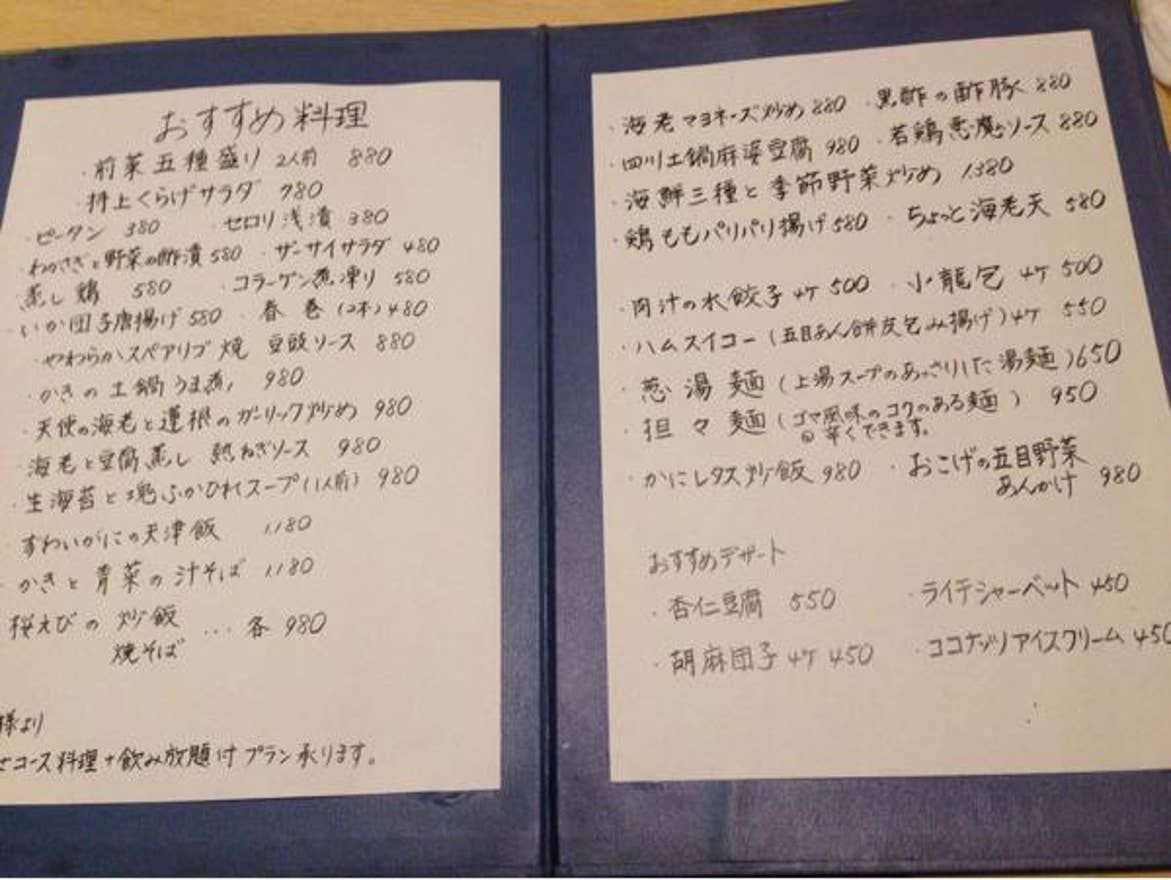 おすすめ料理
・前菜五種盛り 2人前 880
・特上くらげサラダ 780
・ピータン 380 ・セロリ浅漬 380
・わかさぎと野菜の酢漬 580 ・ザーサイサラダ 480
蒸し鶏 580 ・コラーゲン煮凍り 580
・いか団子唐揚げ 580 ・春巻(2本) 480
・やわらかスペアリブ焼 豆豉ソース 880
・かきの土鍋うま煮 980
・天使の海老と蓮根のガーリック炒め 980
・海老と豆腐蒸し 熱ねぎソース 980
・生海苔と ふかひれスープ(1人前) 980
・ずわいがにの天津飯 1,180
・かきと青菜の汁そば 1,180
桜えびの炒飯
焼そば … 各 980
様より
コース料理+飲み放題付プラン承ります。
・海老マヨネーズ炒め 880 ・黒酢の酢豚 880
・四川土鍋麻婆豆腐 980 ・若鶏悪魔ソース 880
・海鮮三種と季節野菜炒め 1,380
・鶏ももパリパリ揚げ 580 ・ちょっと海老天 580
・肉汁の水餃子 4ケ 500 ・小龍包 4ケ 500
・ハムスイコー(五目あん餅皮包み揚げ) 4ケ 550
・葱湯麺(上湯スープのあっさりした湯麺) 650
・担々麺(ゴマ風味のコクのある麺) 950
辛くできます。
・かにレタス炒飯 980 ・おこげの五目野菜
あんかけ 980
おすすめデザート
・杏仁豆腐 550 ・ライチシャーベット 450
・胡麻団子 4ケ 450 ・ココナッツアイスクリーム 450